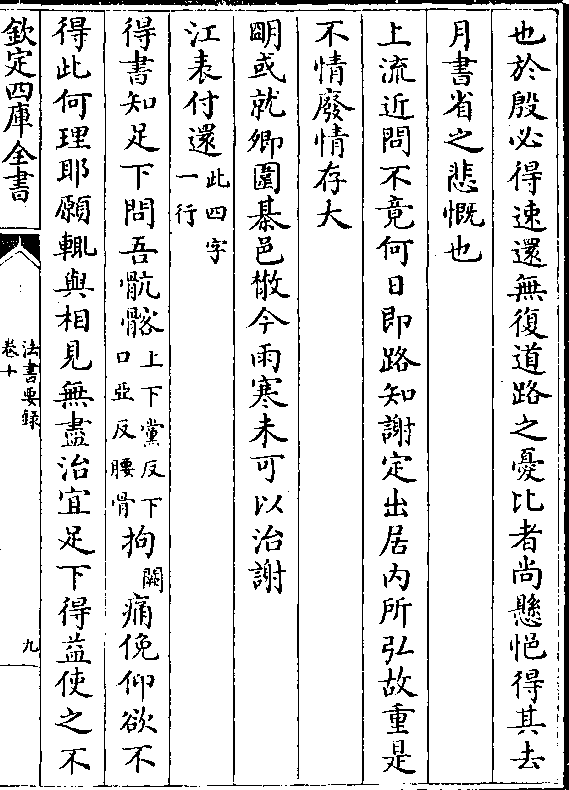 也於殷必得速還無復道路之憂比者尚懸悒得其去
月書省之悲慨也
上流近問不竟何日即路知謝定出居内所弘故重是
不情廢情存大
明或就卿圍棊邑散今雨寒未可以治謝
江表付還此四字一行
得書知足下問吾骯髂上下黨反下口亞反腰骨拘闕痛俛仰欲不
得此何理耶願輒與相見無盡治宜足下得益使之不
欽定四庫全書
法書要録
卷十
九